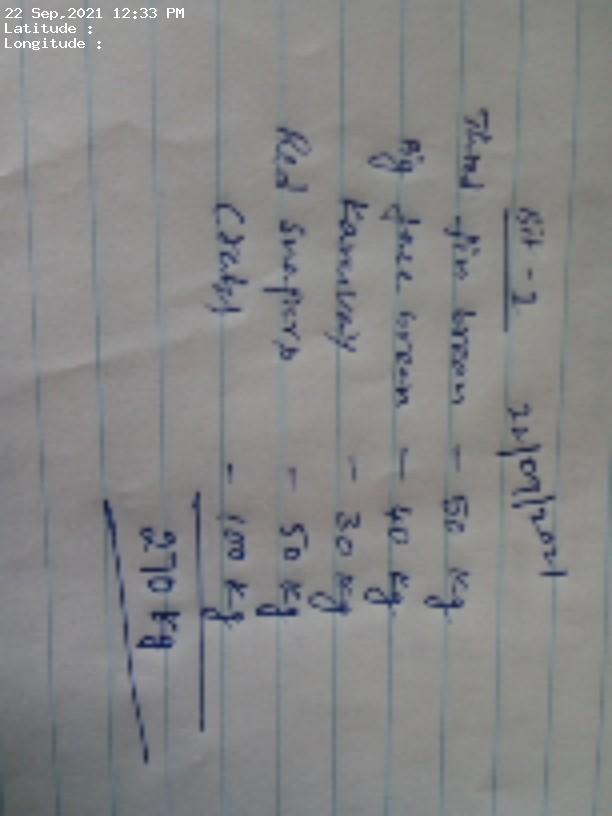 22 Sep,2021 12:33 PM
Latitude :
Longitude :
21/09/2021
Thred fin bream - 50 Kg
Big bream - 40 Kg
- 30 Kg
Red Snapers - 50 Kg
Crabs - 100 Kg
270 Kg